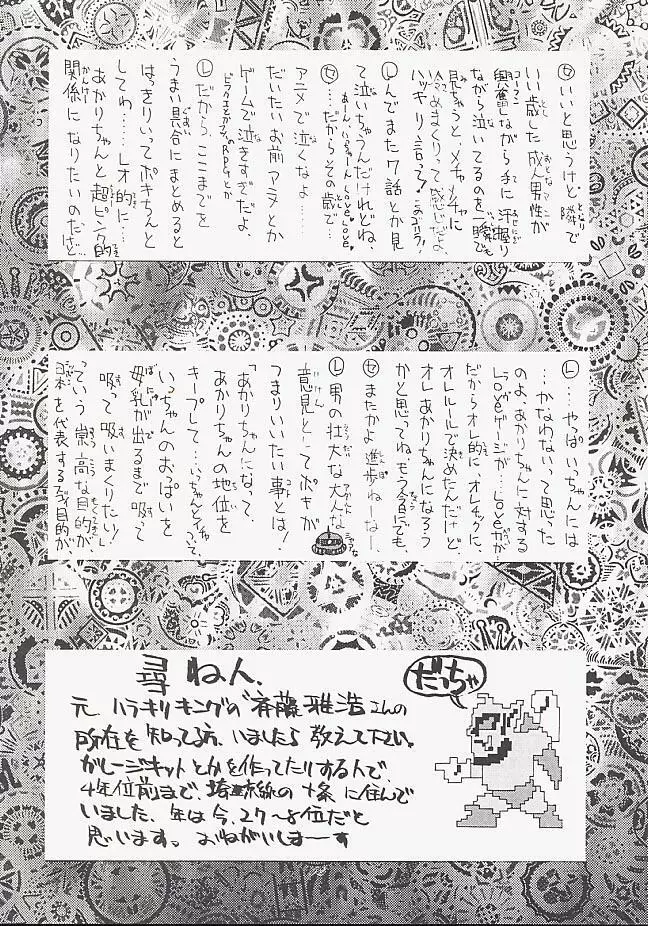 ㋝いいと思うけど、隣で
いい歳した成人男性が
興奮しながら手に汗握り
ながら泣いてるのを一瞬でも
見ちゃうと、メチャメチャに
あんまりって感じだよ。
ハッキリ言って!
㋹んでまた7話とか見
て泣いちゃうんだけれどね、
㋝…だからその歳で…
アニメで泣くなよ……
だいたいお前アニメとか
ゲームで泣きすぎだよ。
RPGとか
㋹だから、ここまでを
うまい具合にまとめると
はっきりいってボキちんと
してわ……レオ的に……
あかりちゃんと超ピンク的
関係になりたいのだけど…
㋹……やっぱいっちゃんには
…かなわないって思った
のよ、あかりちゃんに対する
Loveゲージが…Loveがか
だからオレ的に、オレチックに、
オレルールで決めたんだけど、
オレあかりちゃんになろう
かと思ってね、もう今日にでも、
㋝またかよ進歩ねーなー、
㋹男の壮大な大人な
意見としてボキが
つまりいいたい事とは!
「あかりちゃんになって、
あかりちゃんの地位を
キープして、いっちゃんとイチャって、
いっちゃんのおぱいを
母乳が出るまで吸って
吸って吸いまくりたい!」
っていう崇高な目的が、
日本を代表する目的が、
尋ねん、
元ハラキリキングの斉藤雅浩さんの
所在を知ってる方、いましたら教えて下さい。
ガレージキットとかを作ってたりする人で、
4年位前まで、埼京線の十条に住んで
いました、年は今、27〜8位だと
思います。おねがいしまーす
だっちゃ